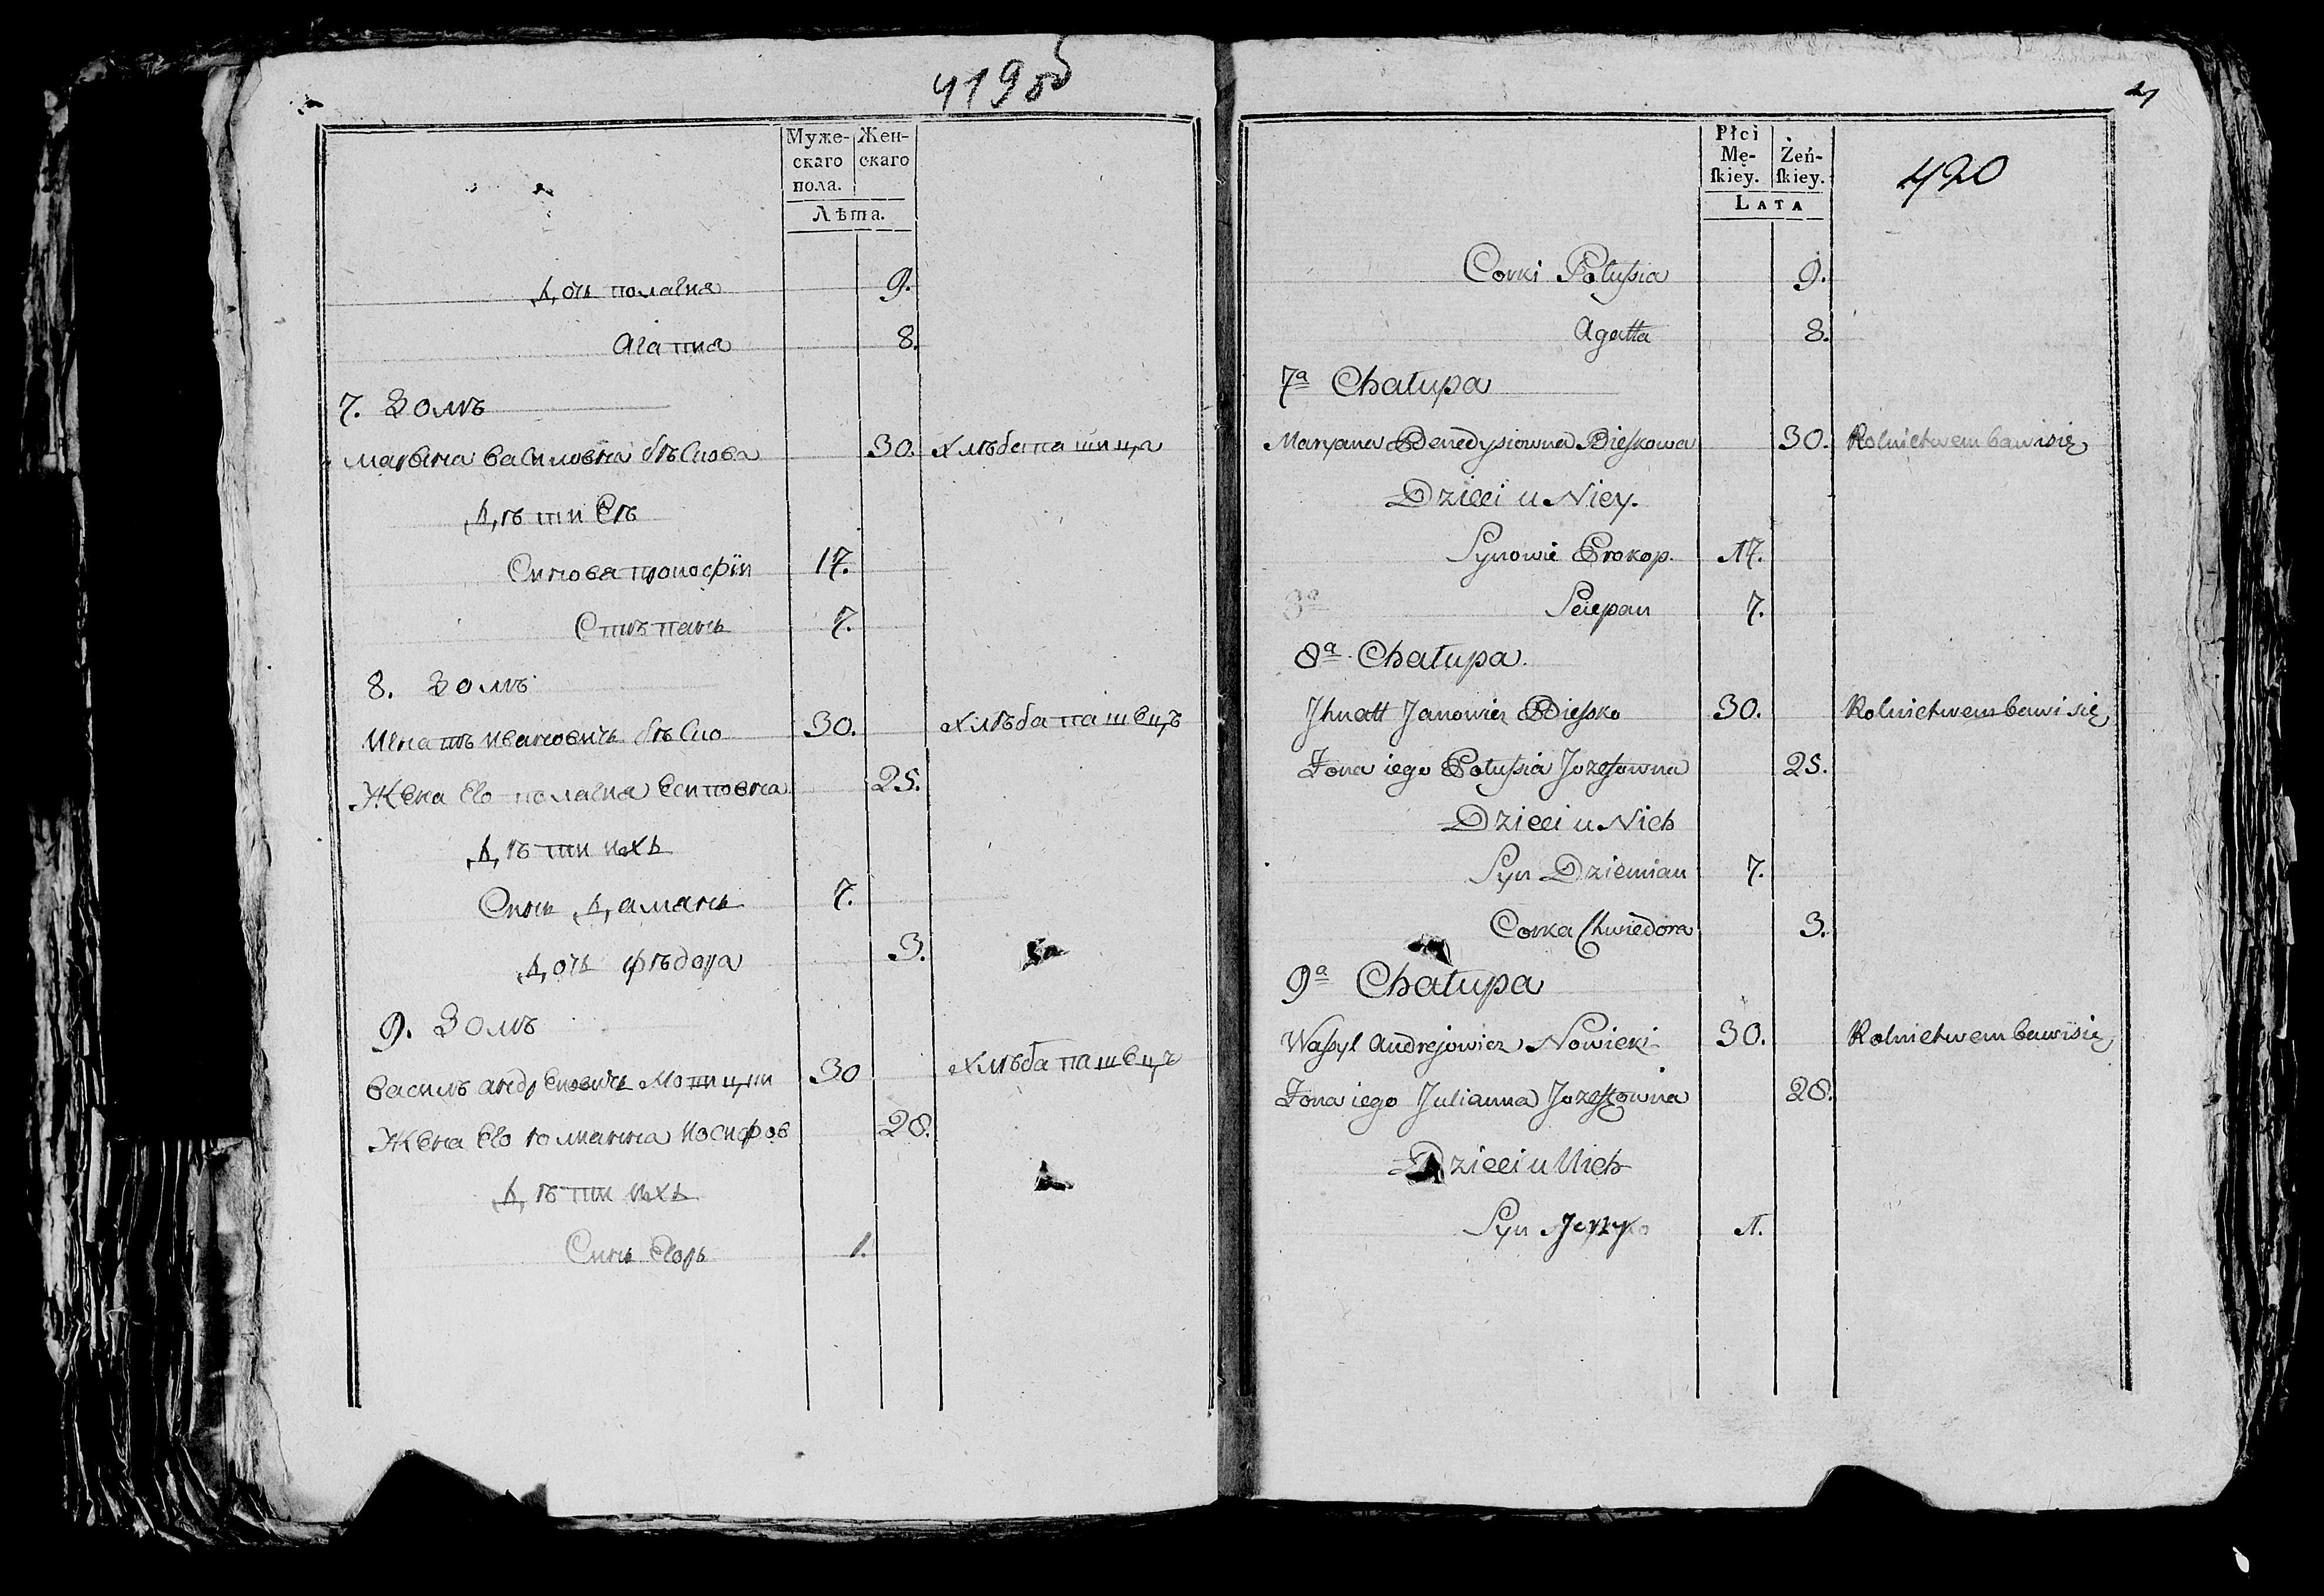 419 об
Муже-
скаго
пола.
Жен-
скаго
Лѣта.
Дочь полагия 9.
Агатия 8.
7. Домъ
Марьяна Василовна бѣскова 30. хлѣбапашица
Дѣти Еѣ
Синовя прокофіи 17.
Стѣпанъ 7.
8. Домъ
Игнатъ ивановичъ бѣско 30. хлѣбапашецъ
Жена Его полагия Есиповна 25.
Дѣти ихъ
Синъ Дамянъ 7.
Дочь фѣдора 3.
9. Домъ
Василъ андреевичъ 30 хлѣбапашецъ
Жена Его юлианна иосифов 28.
Дѣти ихъ
Синъ Егоръ 1.
Płci
Mę-
ſkiey.
Żeń-
ſkiey.
LATA
420
Corki Połuſsia 9.
Agatta 8.
7ª Chałupa
Maryana Benedysiowna Bieſkowa 30. Rolnictwem bawi się
Dzieci u Niey.
Synowie Prokop. 17.
Sciepan 7.
8ª Chałupa.
Jhnatt Janowicz Bieſsko 30. Rolnictwem bawi się
Żona iego Połuſsia Jozefowna 25.
Dzieci u Nich
Syn Dziemian 7.
Corka Chwiedora 3.
9ª Chałupa
Waſsyl Andrejowicz Nowicki 30. Rolnictwem bawi się
Żona iego Julianna Jozeffowna 28.
Dzieci u Nich
Syn 1.